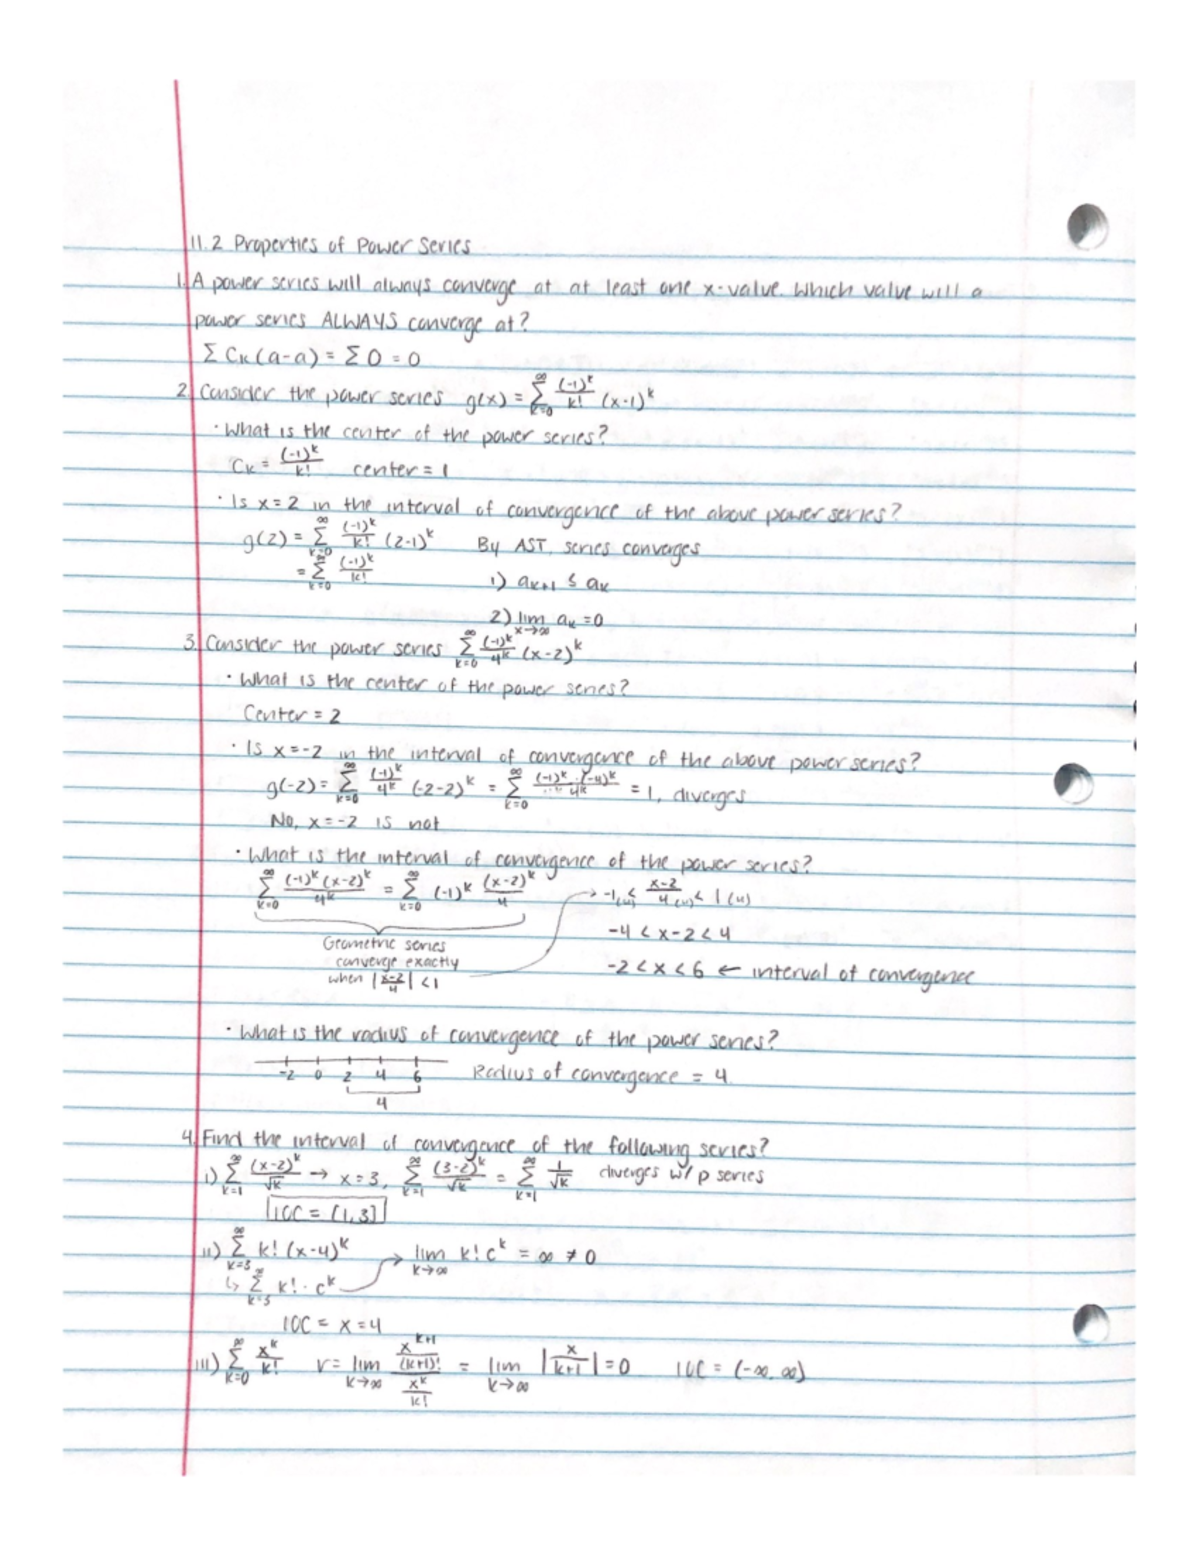 11.2 Properties of Power Series
1. A power series will always converge at at least one x-value. Which value will a
power series ALWAYS converge at?
Σ Cₖ(a-a) = Σ 0 = 0
2. Consider the power series g(x) = Σ_{k=0}^{∞} (-1)^k/k! (x-1)^k
· What is the center of the power series?
Cₖ = (-1)^k/k! center = 1
· Is x=2 in the interval of convergence of the above power series?
g(2) = Σ_{k=0}^{∞} (-1)^k/k! (2-1)^k By AST, series converges
= Σ_{k=0}^{∞} (-1)^k/k! 1) aₖ₊₁ ≤ aₖ
2) lim_{x→∞} aₖ = 0
3. Consider the power series Σ_{k=0}^{∞} (-1)^k/4^k (x-2)^k
· What is the center of the power series?
Center = 2
· Is x=-2 in the interval of convergence of the above power series?
g(-2) = Σ_{k=0}^{∞} (-1)^k/4^k (-2-2)^k = Σ_{k=0}^{∞} (-1)^k·(-4)^k/4^k = 1, diverges
No, x=-2 is not
· What is the interval of convergence of the power series?
Σ_{k=0}^{∞} (-1)^k(x-2)^k/4^k = Σ_{k=0}^{∞} (-1)^k (x-2)^k/4 → -1(4) < x-2/4 (4) < 1(4)
-4 < x-2 < 4
Geometric series
converge exactly
when |x-2/4| < 1
-2 < x < 6 ← interval of convergence
· What is the radius of convergence of the power series?
-2 0 2 4 6 Radius of convergence = 4
4
4. Find the interval of convergence of the following series?
i) Σ_{k=1}^{∞} (x-2)^k/√k → x=3, Σ_{k=1}^{∞} (3-2)^k/√k = Σ_{k=1}^{∞} 1/√k diverges w/ p series
IOC = (1,3]
ii) Σ_{k=3}^{∞} k!(x-4)^k lim_{k→∞} k! c^k = ∞ ≠ 0
↳ Σ_{k=3}^{∞} k!·c^k
IOC = x=4
iii) Σ_{k=0}^{∞} x^k/k! r = lim_{k→∞} (x^{k+1}/(k+1)!)/(x^k/k!) = lim_{k→∞} |x/k+1| = 0 IOC = (-∞,∞)